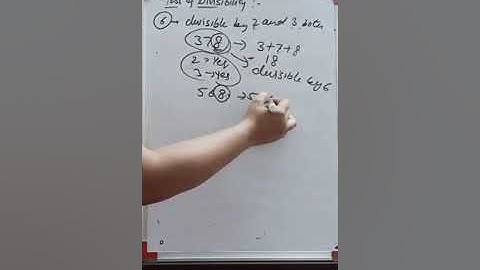 Test of Divisibility :-
⑥ → divisible by 2 and 3 both
378 → 3+7+8
2 → yes 18
3 → yes divisible by 6
568 → 5